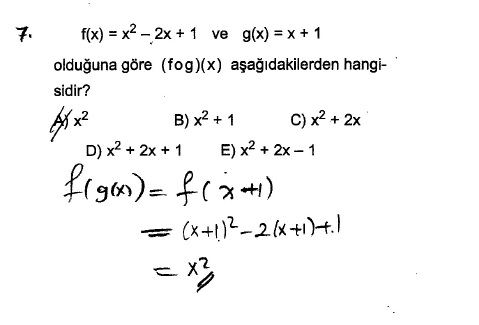 7. f(x) = x² – 2x + 1 ve g(x) = x + 1
olduğuna göre (fog)(x) aşağıdakilerden hangi-
sidir?
A) x² B) x² + 1 C) x² + 2x
D) x² + 2x + 1 E) x² + 2x – 1
f(g(x)) = f(x+1)
= (x+1)² - 2(x+1)+1
= x²